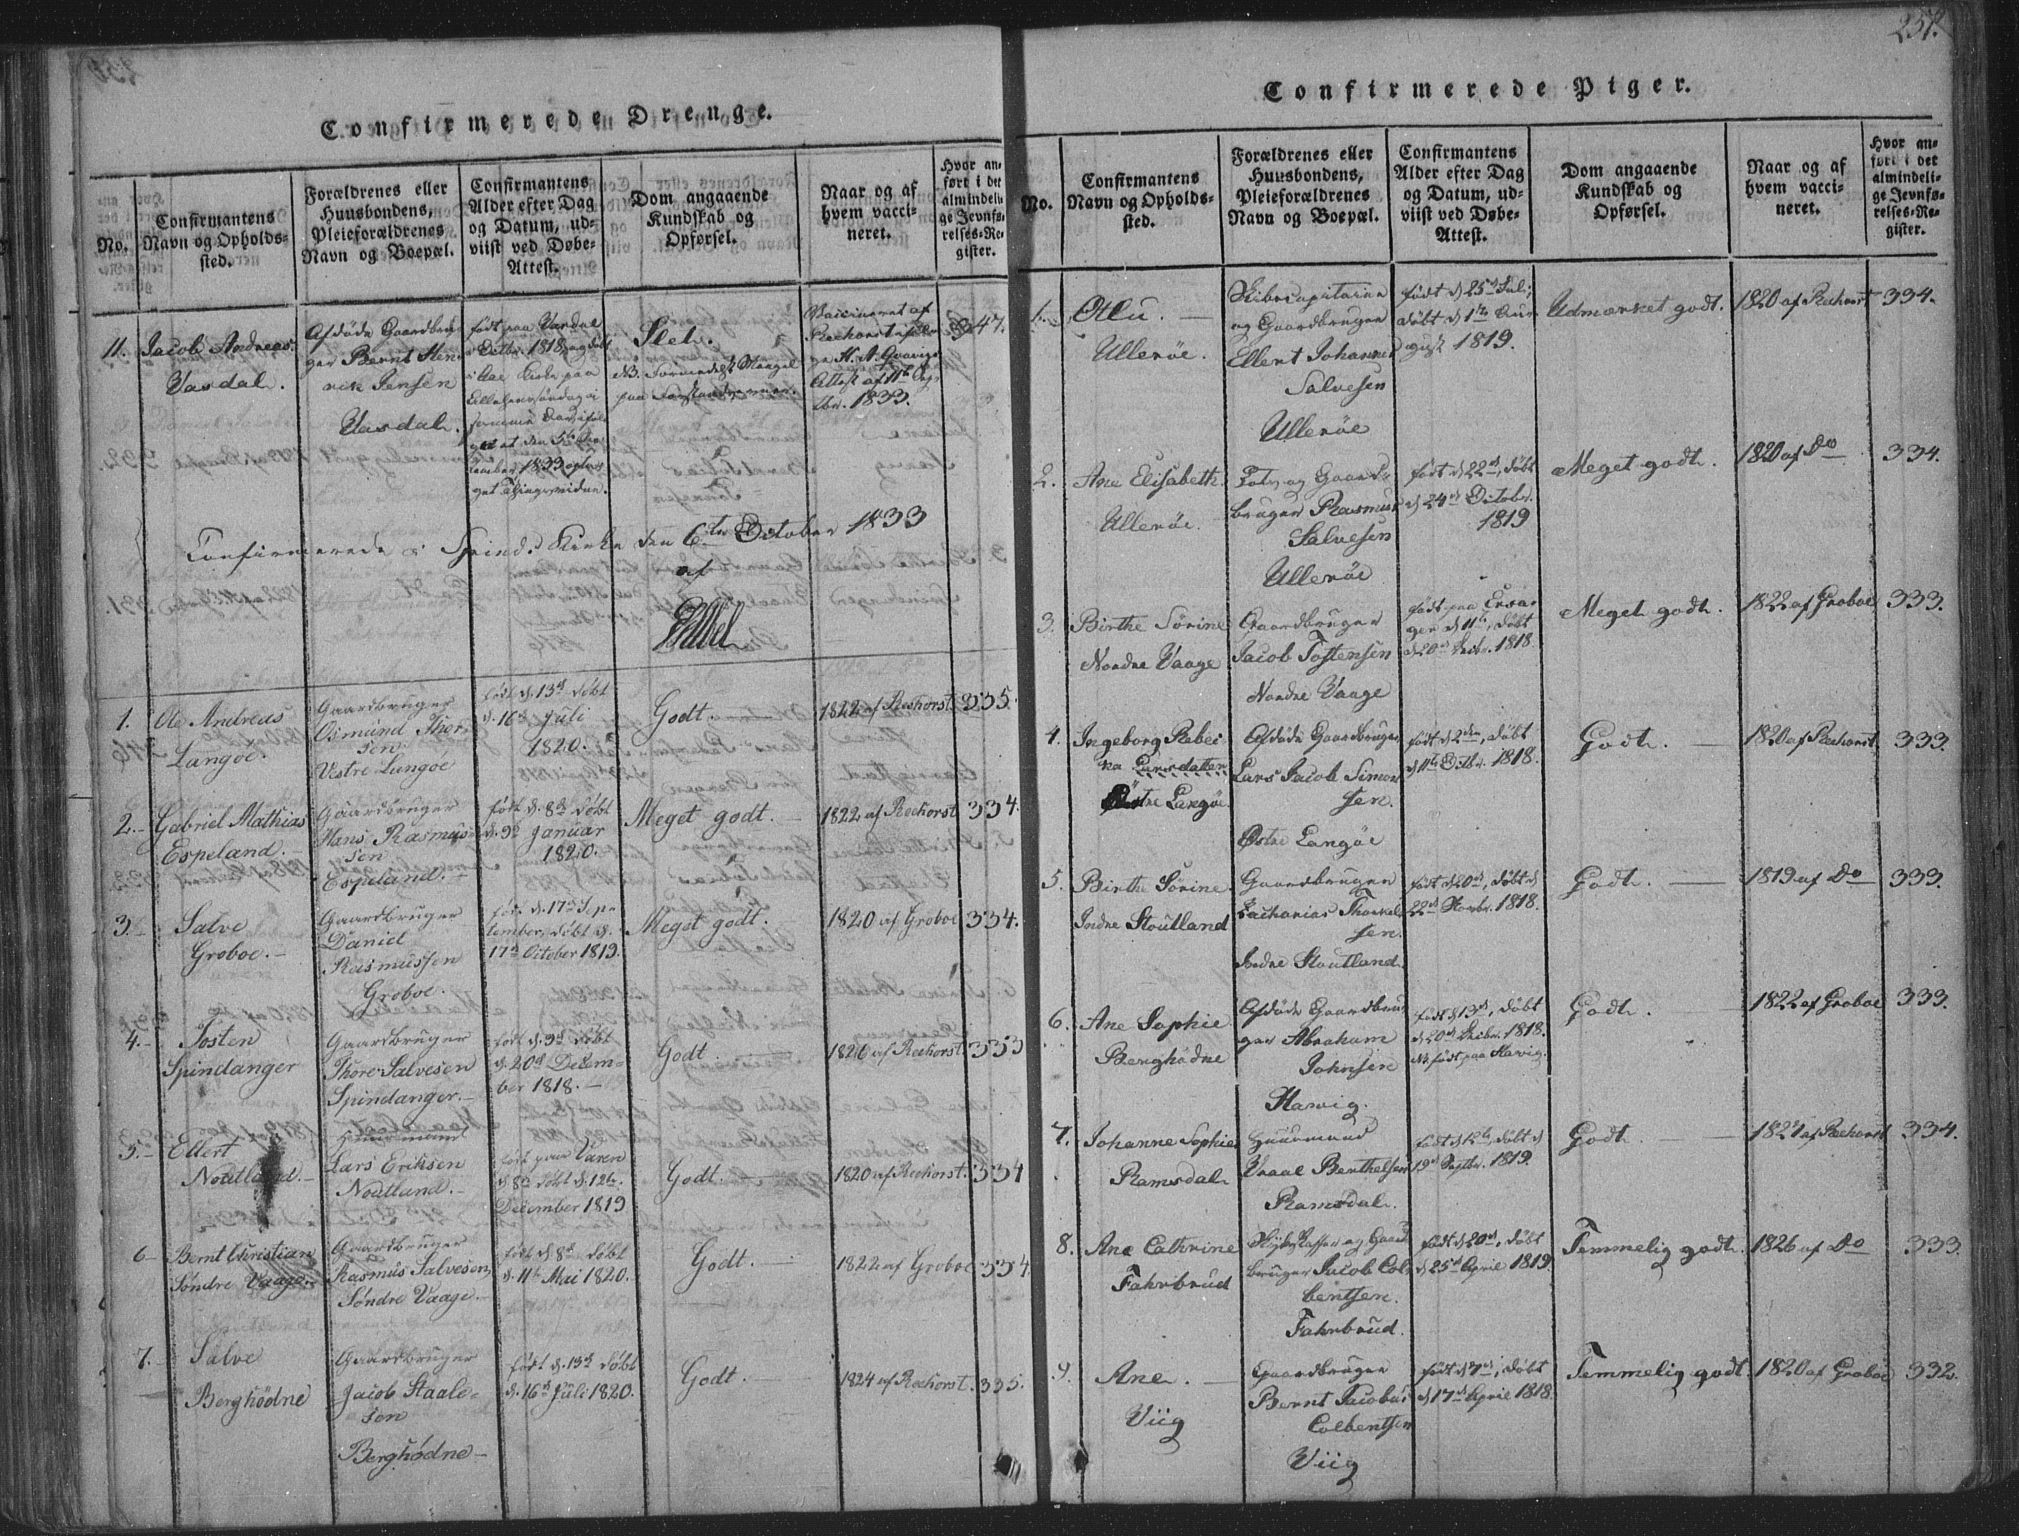 Confirmerede Drenge.
No.
Confirmantens
Navn og Opholds-
sted.
Forældrenes eller
Huusbondens,
Pleieforældrenes
Navn og Boepæl.
Confirmantens
Alder efter Dag
og Datum, ud-
viist ved Døbe-
Attest.
Dom angaaende
Kundskab og
Opførsel.
Naar og af
hvem vacci-
neret.
Hvor an-
ført i det
almindeli-
ge Jevnfø-
relses-Re-
gister.
11.
Jacob Andreas
Vasdal.
Afdøde Gaardbru-
ger Bernt Hen-
rick Jensen
Vasdal.
født paa Vasdal
1818
1833
Slet.
NB. Formedelst Mangel
paa
Vaccineret af
Rechorst
Attest af 11te Sep-
tbr. 1833.
347.
Confirmerede i Spinds Kirke den 6te October 1833
af
1.
Ole Andreas
Langøe.
Gaardbruger
Osmund Thor-
sen
Vestre Langøe
født d. 13de døbt
d. 16de Juli
1820.
Godt.
1822 af Rechorst
335.
2.
Gabriel Mathias
Espeland.
Gaardbruger
Hans Rasmus-
sen
Espeland.
født d. 8de døbt
d. 9de Januar
1820.
Meget godt.
1822 af Rechorst
334.
3.
Salve
Groboe.
Gaardbruger
Daniel
Rasmussen
Groboe.
født d. 17de Sep-
tember, døbt d.
17de October 1819.
Meget godt.
1820 af Groboe
334.
4.
Tosten
Spindanger
Gaardbruger
Thore Salvesen
Spindanger.
født d. 9de døbt
d. 20de Decem-
ber 1818.
Godt.
1820 af Rechorst.
333
5.
Ellert
Noutland.
Huusmand
Lars Eriksen
Noutland.
født paa Varen
d. 8de døbt d. 12te
December 1819
Godt.
1820 af Rechorst.
334
6
Bernt Christian
Søndre Vaage.
Gaardbruger
Rasmus Salvesen
Søndre Vaage.
født d. 8de døbt
d. 11te Mai 1820.
Godt.
1822 af Groboe
334.
7.
Salve
Berghødne
Gaardbruger
Jacob Staale-
sen
Berghødne
født d. 13de døbt
d. 16de Juli 1820.
Godt.
1824 af Rechorst.
335.
257.
Confirmerede Piger.
No.
Confirmantens
Navn og Opholds-
sted.
Forældrenes eller
Huusbondens,
Pleieforældrenes
Navn og Boepæl.
Confirmantens
Alder efter Dag
og Datum, ud-
viist ved Døbe-
Attest.
Dom angaaende
Kundskab og
Opførsel.
Naar og af
hvem vacci-
neret.
Hvor an-
ført i det
almindeli-
ge Jevnfø-
relses-Re-
gister.
1.
Ullerøe.
Skibscapitaine
og Gaardbruger
Ellert Johannes
Salvesen
Ullerøe
født d. 25de Juli,
døbt d. 1ste Au-
gust 1819.
Udmærket godt.
1820 af Rechorst
334.
2.
Ane Elisabeth
Ullerøe.
Lots og Gaard-
bruger Rasmus
Salvesen
Ullerøe
født d. 22de, døbt
d. 24de Octobr.
1819
Meget godt.
1820 af Do
334.
3.
Birthe Sørine
Nordre Vaage
Gaardbruger
Jacob Tostensen
Nordre Vaage
født paa
d. 11te, døbt
d. 20de Decbr. 1818.
Meget godt.
1822 af Groboe
333.
4.
Ingeborg Rebec-
ka Larsdatter
Østre Langøe
Afdøde Gaardbruger
Lars Jacob Simon-
sen.
Østre Langøe
født d. 2den, døbt
d. 11te Octbr. 1818.
Godt.
1820 af Rechorst
333.
5.
Birthe Sørine
Indre Stoutland
Gaardbruger
Zacharias Thorkel-
sen.
Indre Stoutland.
født d. 20de, døbt d.
22de Novbr. 1818.
Godt.
1819 af Do
333.
6.
Ane Sophie
Berghødne
Afdøde Gaardbru-
ger Abraham
Johnsen
Harvig.
født d. 13de, døbt
d. 20de Decbr. 1818.
NB. født paa Harvig.
Godt.
1822 af Groboe
333.
7.
Johanne Sophie
Ramsdal
Huusmand
Vraal Berthelsen
Ramsdal.
født d. 12te, døbt d.
19de Septbr. 1819.
Godt.
1827 af Rechorst
334.
8.
Ane Cathrine
Fahrbrud
og Gaard-
bruger Jacob Col-
bentsen.
Fahrbrud.
født d. 20de, døbt
d. 25de April 1819.
Temmelig godt.
1826 af Do
333.
9.
Ane.
Viig
Gaardbruger
Bernt Jacobus
Colbentsen
Viig
født d. 7de, døbt
d. 17de April 1818.
Temmelig godt.
1820 af Groboe
332.